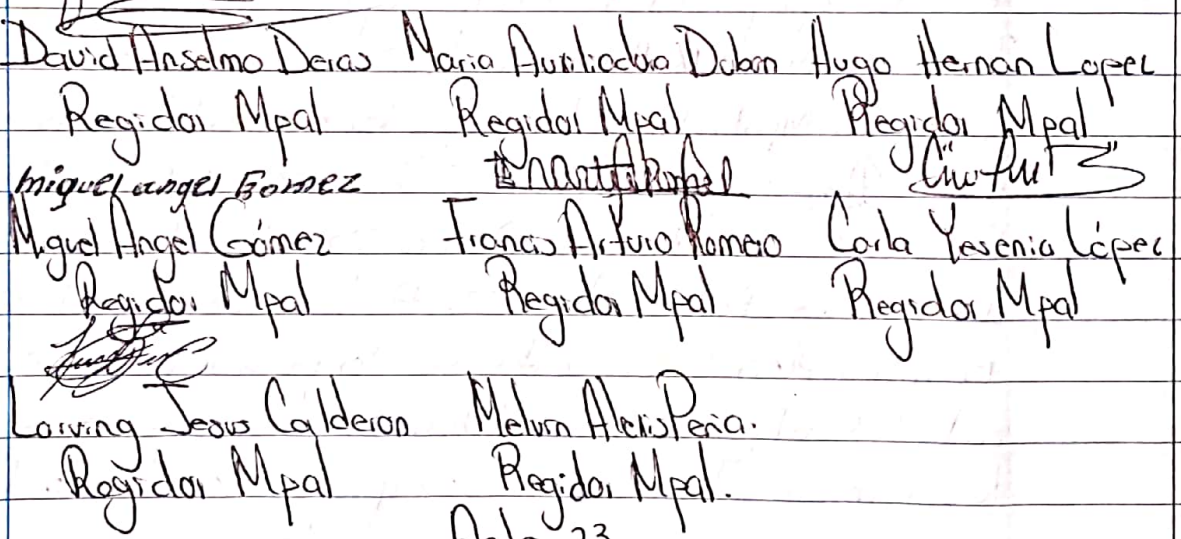 David Anselmo Deras Maria Auxiliadora Dubon Hugo Hernan Lopez
Regidor Mpal Regidor Mpal Regidor Mpal
miguel angel Gomez
Miguel Angel Gómez Francis Arturo Romero Carla Yesenia López
Regidor Mpal Regidor Mpal Regidor Mpal
Jesus Calderon Melvin Alexis Peña.
Regidor Mpal Regidor Mpal.
23